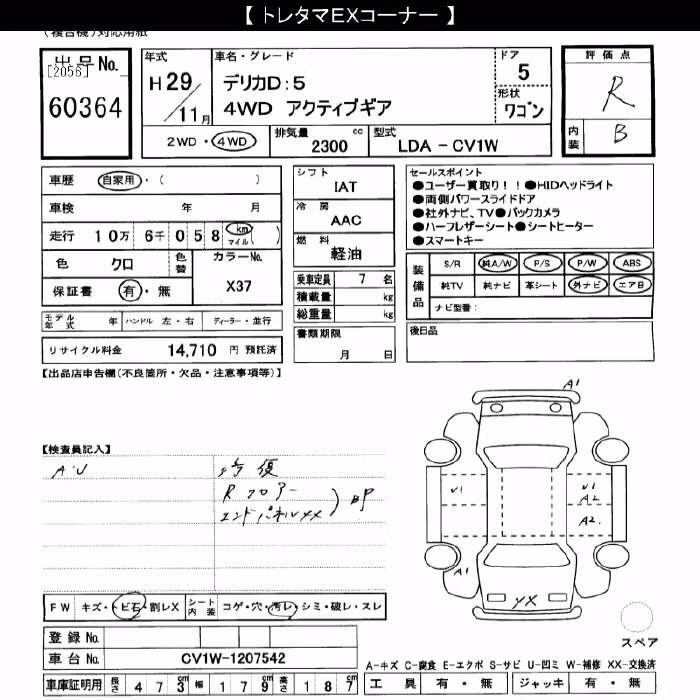 【 トレタマEXコーナー 】
(複合機)対応用紙
出品No.
[2056]
60364
年式
H29/11月
車名・グレード
デリカD:5
4WD アクティブギア
ドア
5
形状
ワゴン
評価点
R
内装
B
2WD・4WD
排気量 2300 cc
型式 LDA-CV1W
車歴 自家用・( )
車検 年 月
走行 10万 6千 058 km マイル ( )
色 クロ
色替
カラーNo. X37
保証書 有・無
シフト
IAT
冷房
AAC
燃料
軽油
乗車定員 7 名
積載量 kg
総重量 kg
書類期限
月 日
セールスポイント
●ユーザー買取り!!●HIDヘッドライト
●両側パワースライドドア
●社外ナビ、TV●バックカメラ
●ハーフレザーシート●シートヒーター
●スマートキー
装備品
S/R 純A/W P/S P/W ABS
純TV 純ナビ 革シート 外ナビ エアB
ナビ型番:
モデル年式 年 ハンドル 左・右 ディーラー・並行
リサイクル料金 14,710 円 預託済
後日品
【出品店申告欄(不良箇所・欠品・注意事項等)】
A1
【検査員記入】
A・U
修復
Rフロアー
エンドパネルXX
BP
U1
U1
A2
A2.
A1
YX
FW キズ・トビ石・割レX
シート内装 コゲ・穴・汚レ・シミ・破レ・スレ
登録No.
車台No. CV1W-1207542
スペア
A-キズ C-腐食 E-エクボ S-サビ U-凹ミ W-補修 XX-交換済
車庫証明用 長さ 473 cm 幅 179 cm 高さ 187 cm
工具 有・無 ジャッキ 有・無